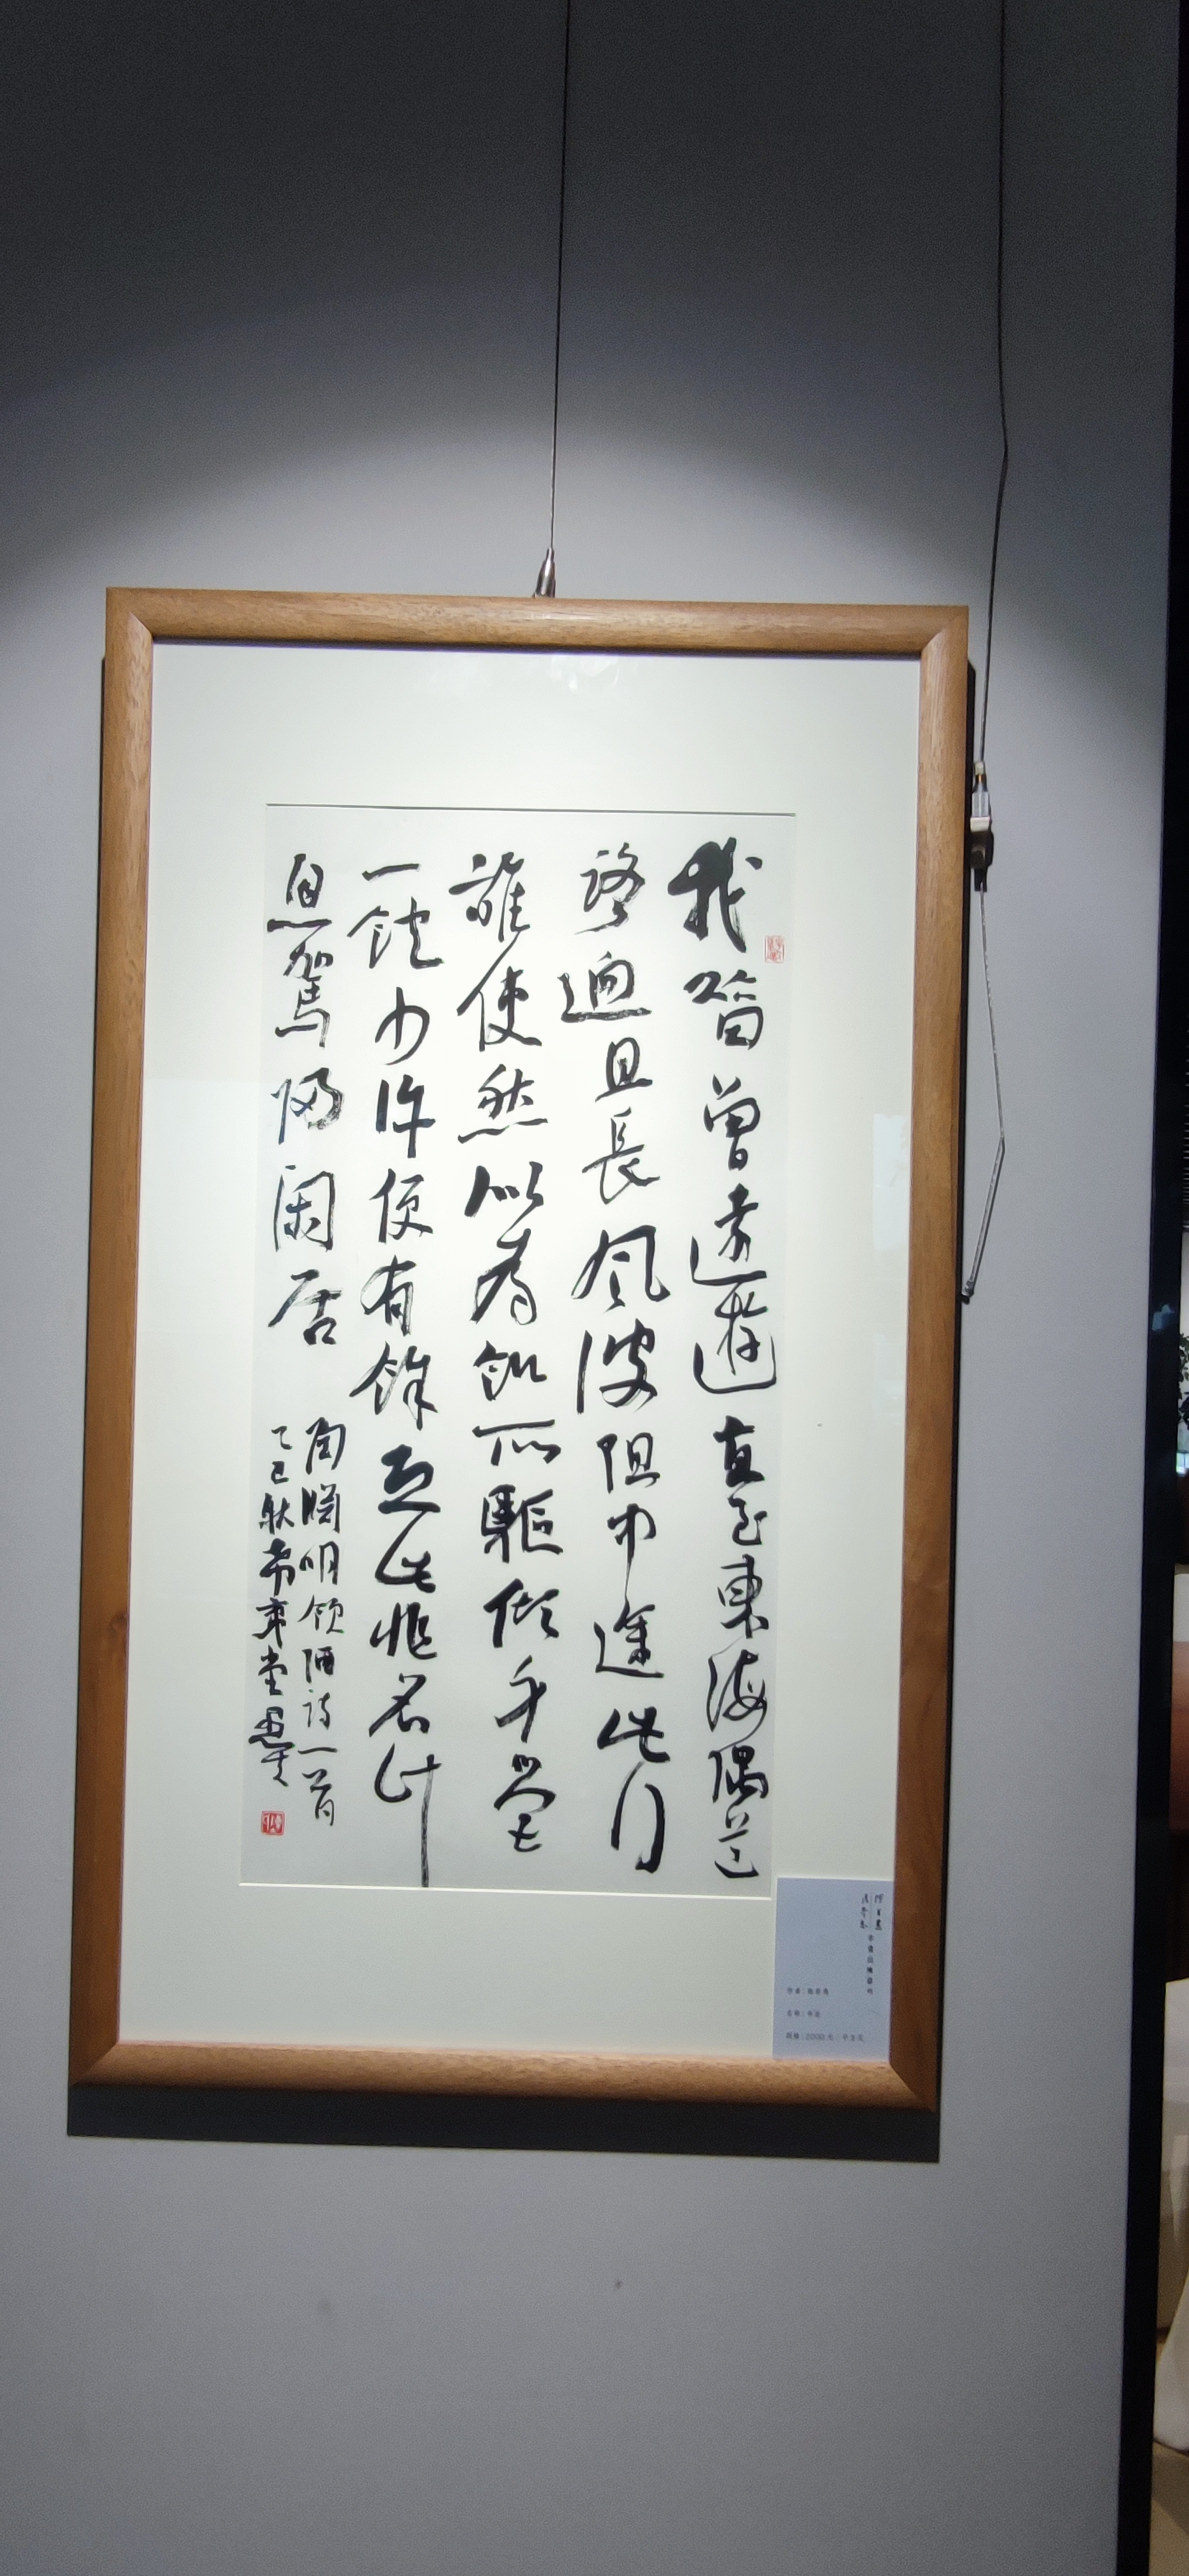 我昔曾遠遊直至東海隅道
路迥且長風波阻中途此行
誰使然似為飢所驅傾身營
一飽少許便有餘恐此非名計
息駕歸閑居
陶淵明飲酒詩一首
乙巳秋